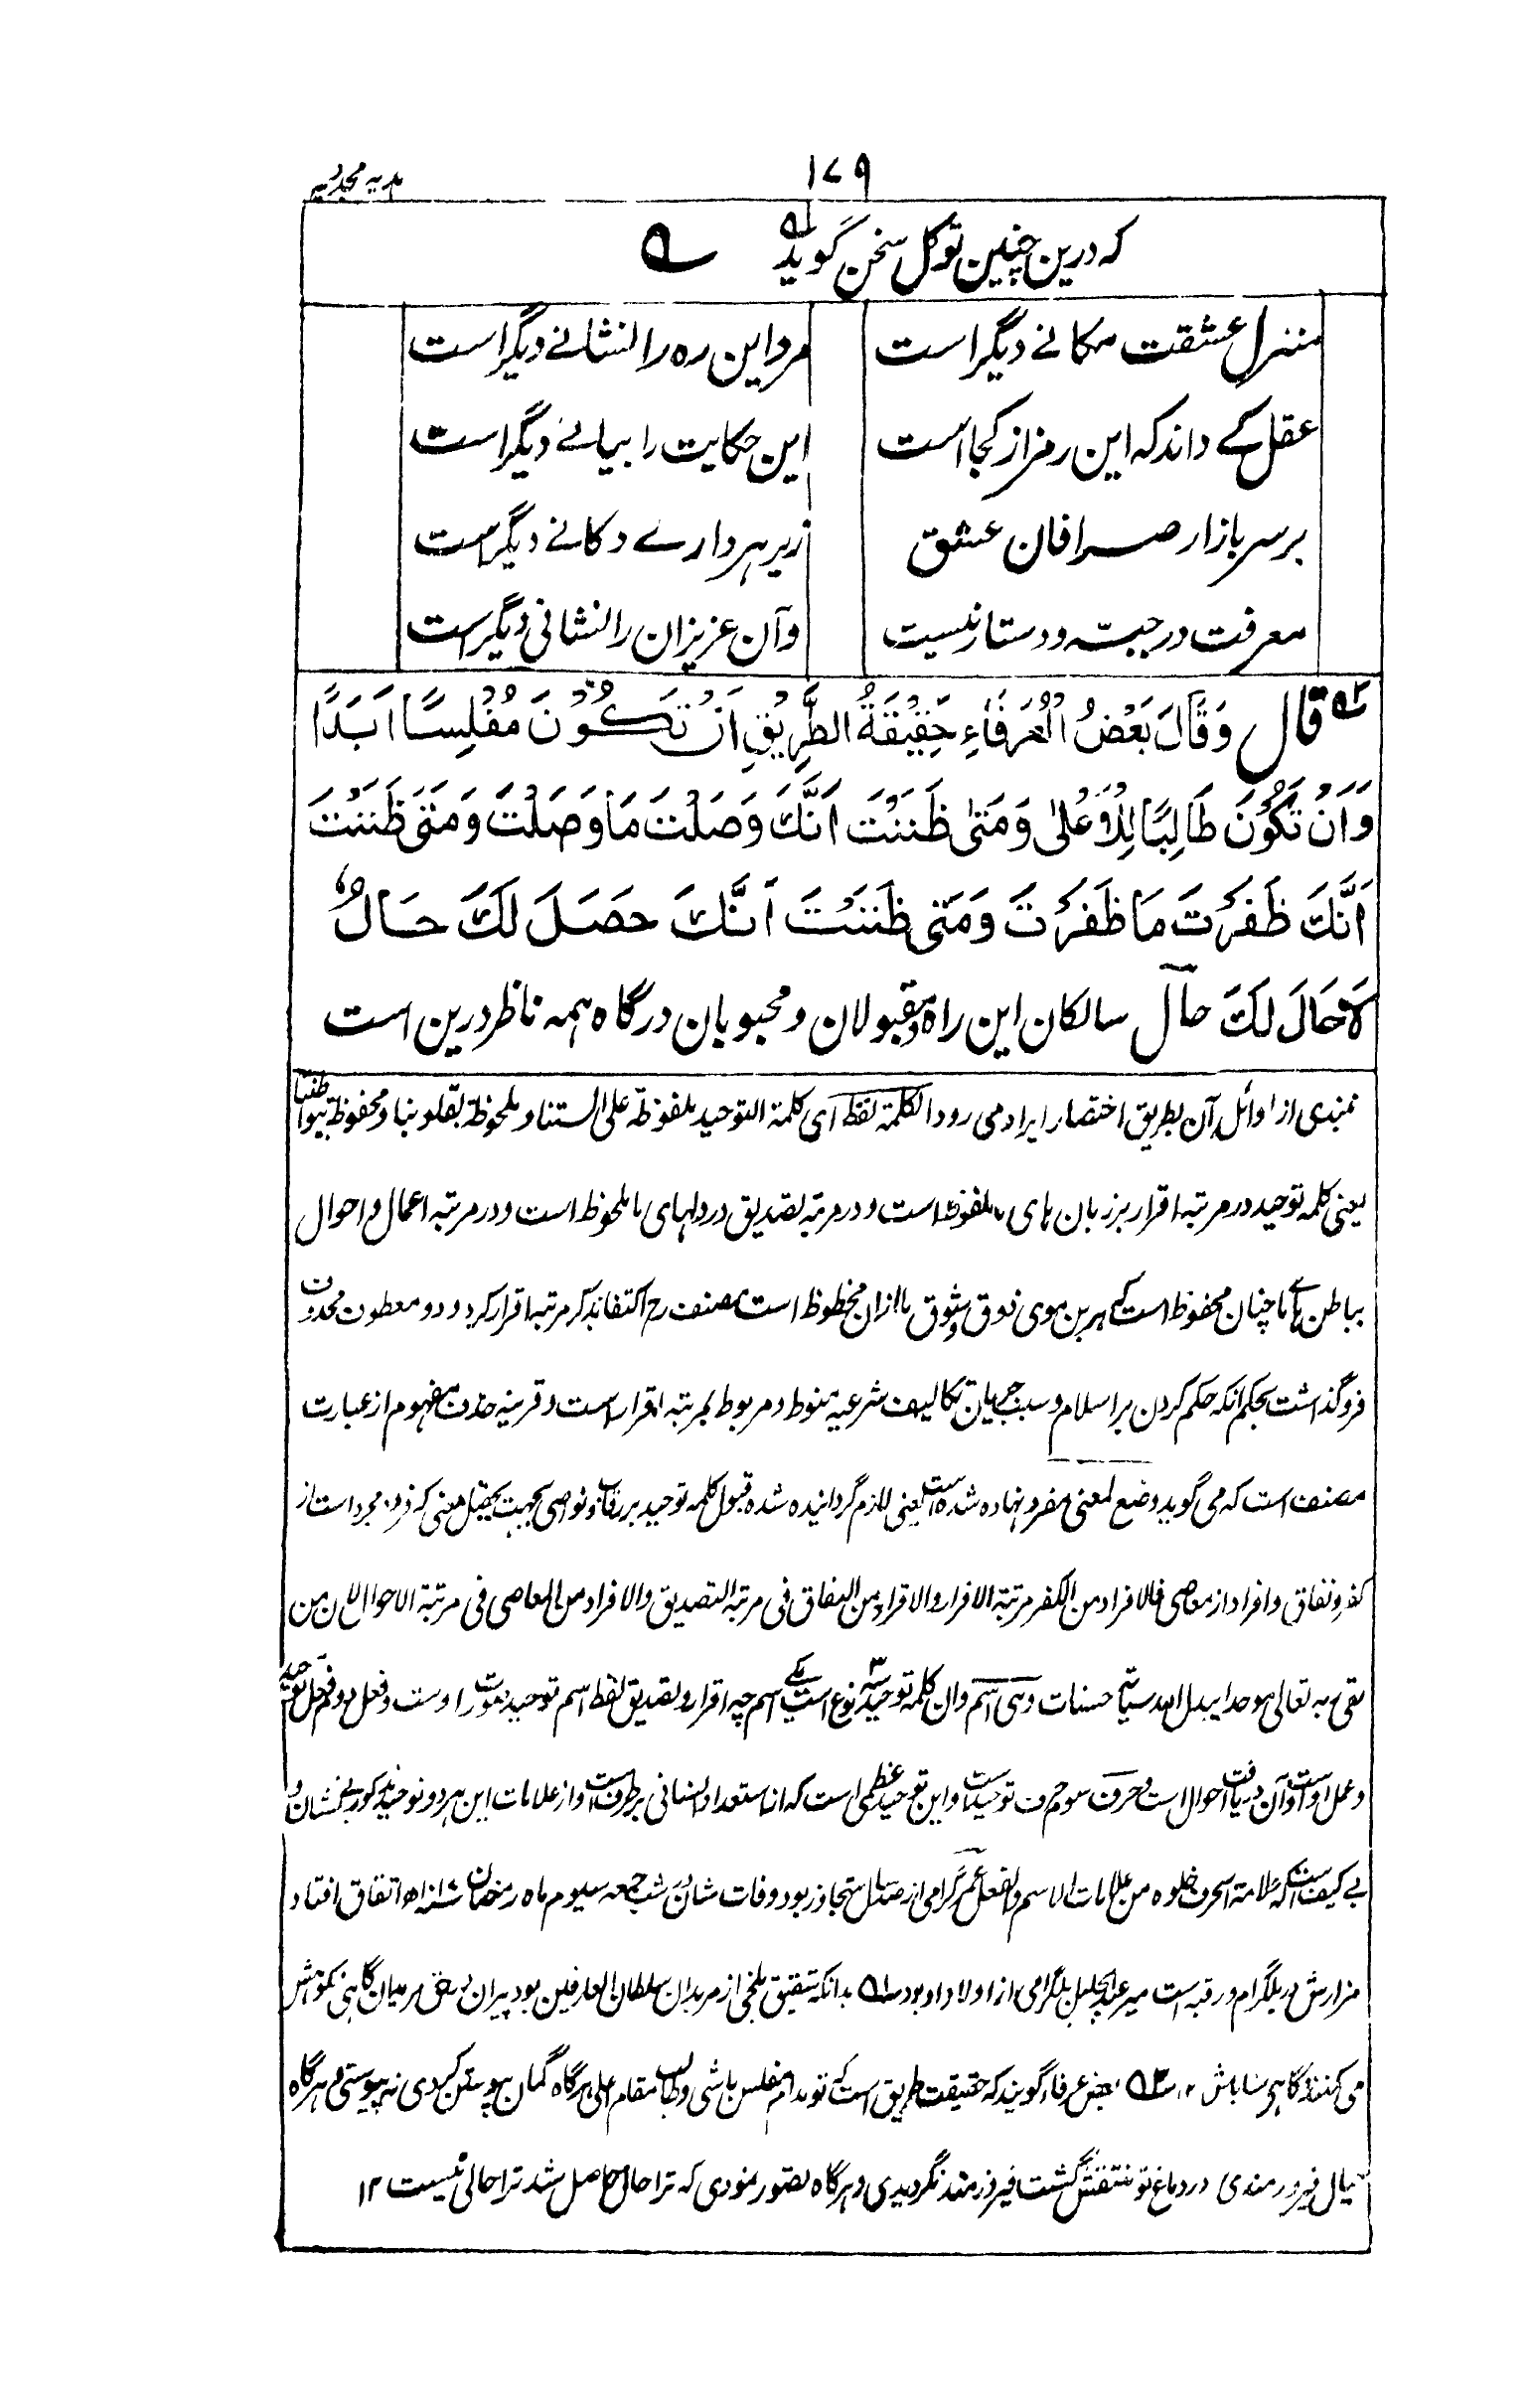 ۱۷۹
هدیه مجددیه
که درین چنین توکل سخن گوید
منزل عشقت مکانے دیگر است
مرد این ره را نشانے دیگر است
عقل کے داند که این رمز از کجا است
این حکایت را بیانے دیگر است
بر سر بازار صرافان عشق
زیر هر دارے دکانے دیگر است
معرفت در جبه و دستار نیست
و آن عزیزان را نشانی دیگر است
قال وَقَالَ بَعْضُ الْعُرَفَاءِ حَقِيْقَةُ الطَّرِيْقِ اَنْ تَكُوْنَ مُفْلِسًا اَبَدًا
وَاَنْ تَكُوْنَ طَالِبًا لِلْاَعْلٰى وَمَتٰى ظَنَنْتَ اَنَّكَ وَصَلْتَ مَا وَصَلْتَ وَمَتٰى ظَنَنْتَ
اَنَّكَ ظَفَرْتَ مَا ظَفَرْتَ وَمَتٰى ظَنَنْتَ اَنَّكَ حَصَلَ لَكَ حَالٌ
لَاحَالَ لَكَ حال سالکان این راه و مقبولان و محبوبان درگاه همه ناظر درین است
نبذی از اوائل آن بطریق اختصار ایراد می رود الکلمة لفظ ای کلمة التوحید ملفوظة علی السنتنا و ملحوظة بقلوبنا و محفوظة ببواطننا
یعنی کلمه توحید در مرتبه اقرار بر زبان های ما ملفوظ است و در مرتبه تصدیق در دلهای ما ملحوظ است و در مرتبه اعمال و احوال
بباطن هاے ما چنان محفوظ است که هر بن موی ذوق و شوق ما ازان محظوظ است مصنف رح اکتفا بذکر مرتبه اقرار کرد و دو معطوف محذوف
فروگذاشت بحکم انکه حکم کردن بر اسلام و سبب جریان تکالیف شرعیه منوط و مربوط بمرتبه اقرار است و قرینه حذف مفهوم از عبارت
مصنف است که می گوید وضع لمعنی مفرد نهاده شده است یعنی لازم گردانیده شده قبول کلمه توحید بر رقاب و نواصی بجهت تحصیل معنی که فرد و مجرد است از
کفر و نفاق و افراد از معاصی فالافراد من الکفر مرتبة الاقرار والافراد من النفاق فی مرتبة التصدیق والافراد من المعاصی فی مرتبة الاحوال لان من
لقی به تعالی موحدا یبدل الله سیاته حسنات وهی اسم وان کلمه توحید سه نوع است یکے اسم چه اقرار و تصدیق لفظ اسم توحید را وست و فعل دوم
و عمل اوست و آن دریافت احوال است و حرف سوم حرف توحید است و این توحید عظمی است که از استعداد انسانی برطرف است و از علامات این هر دو توحید مذکور
بے کیف است که علامة الحرف خلوه من علامات الاسم والفعل عمر گرامی از صد سال متجاوز بود وفات شان شب جمعه سیوم ماه رمضان اتفاق افتاد
مزارش در بلگرام است میر عبد الجلیل بلگرامی از اولاد او بود بدانکه شقیق بلخی از مریدان سلطان العارفین بود پیران بر حق مریدان گاهی نکوهش
می کنند گاهی شاباش ۱۲ بعض عرفاء گویند که حقیقت طریق است که تو مدام مفلس باشی و طالب مقام اعلی هرگاه گمان پیوستن کردی نه پیوستی و هرگاه
خیال فیروزمندی در دماغ تو منتقش گشت فیروزمند نگردیدی و هرگاه تصور نمودی که ترا حال حاصل شد ترا حالی نیست ۱۲